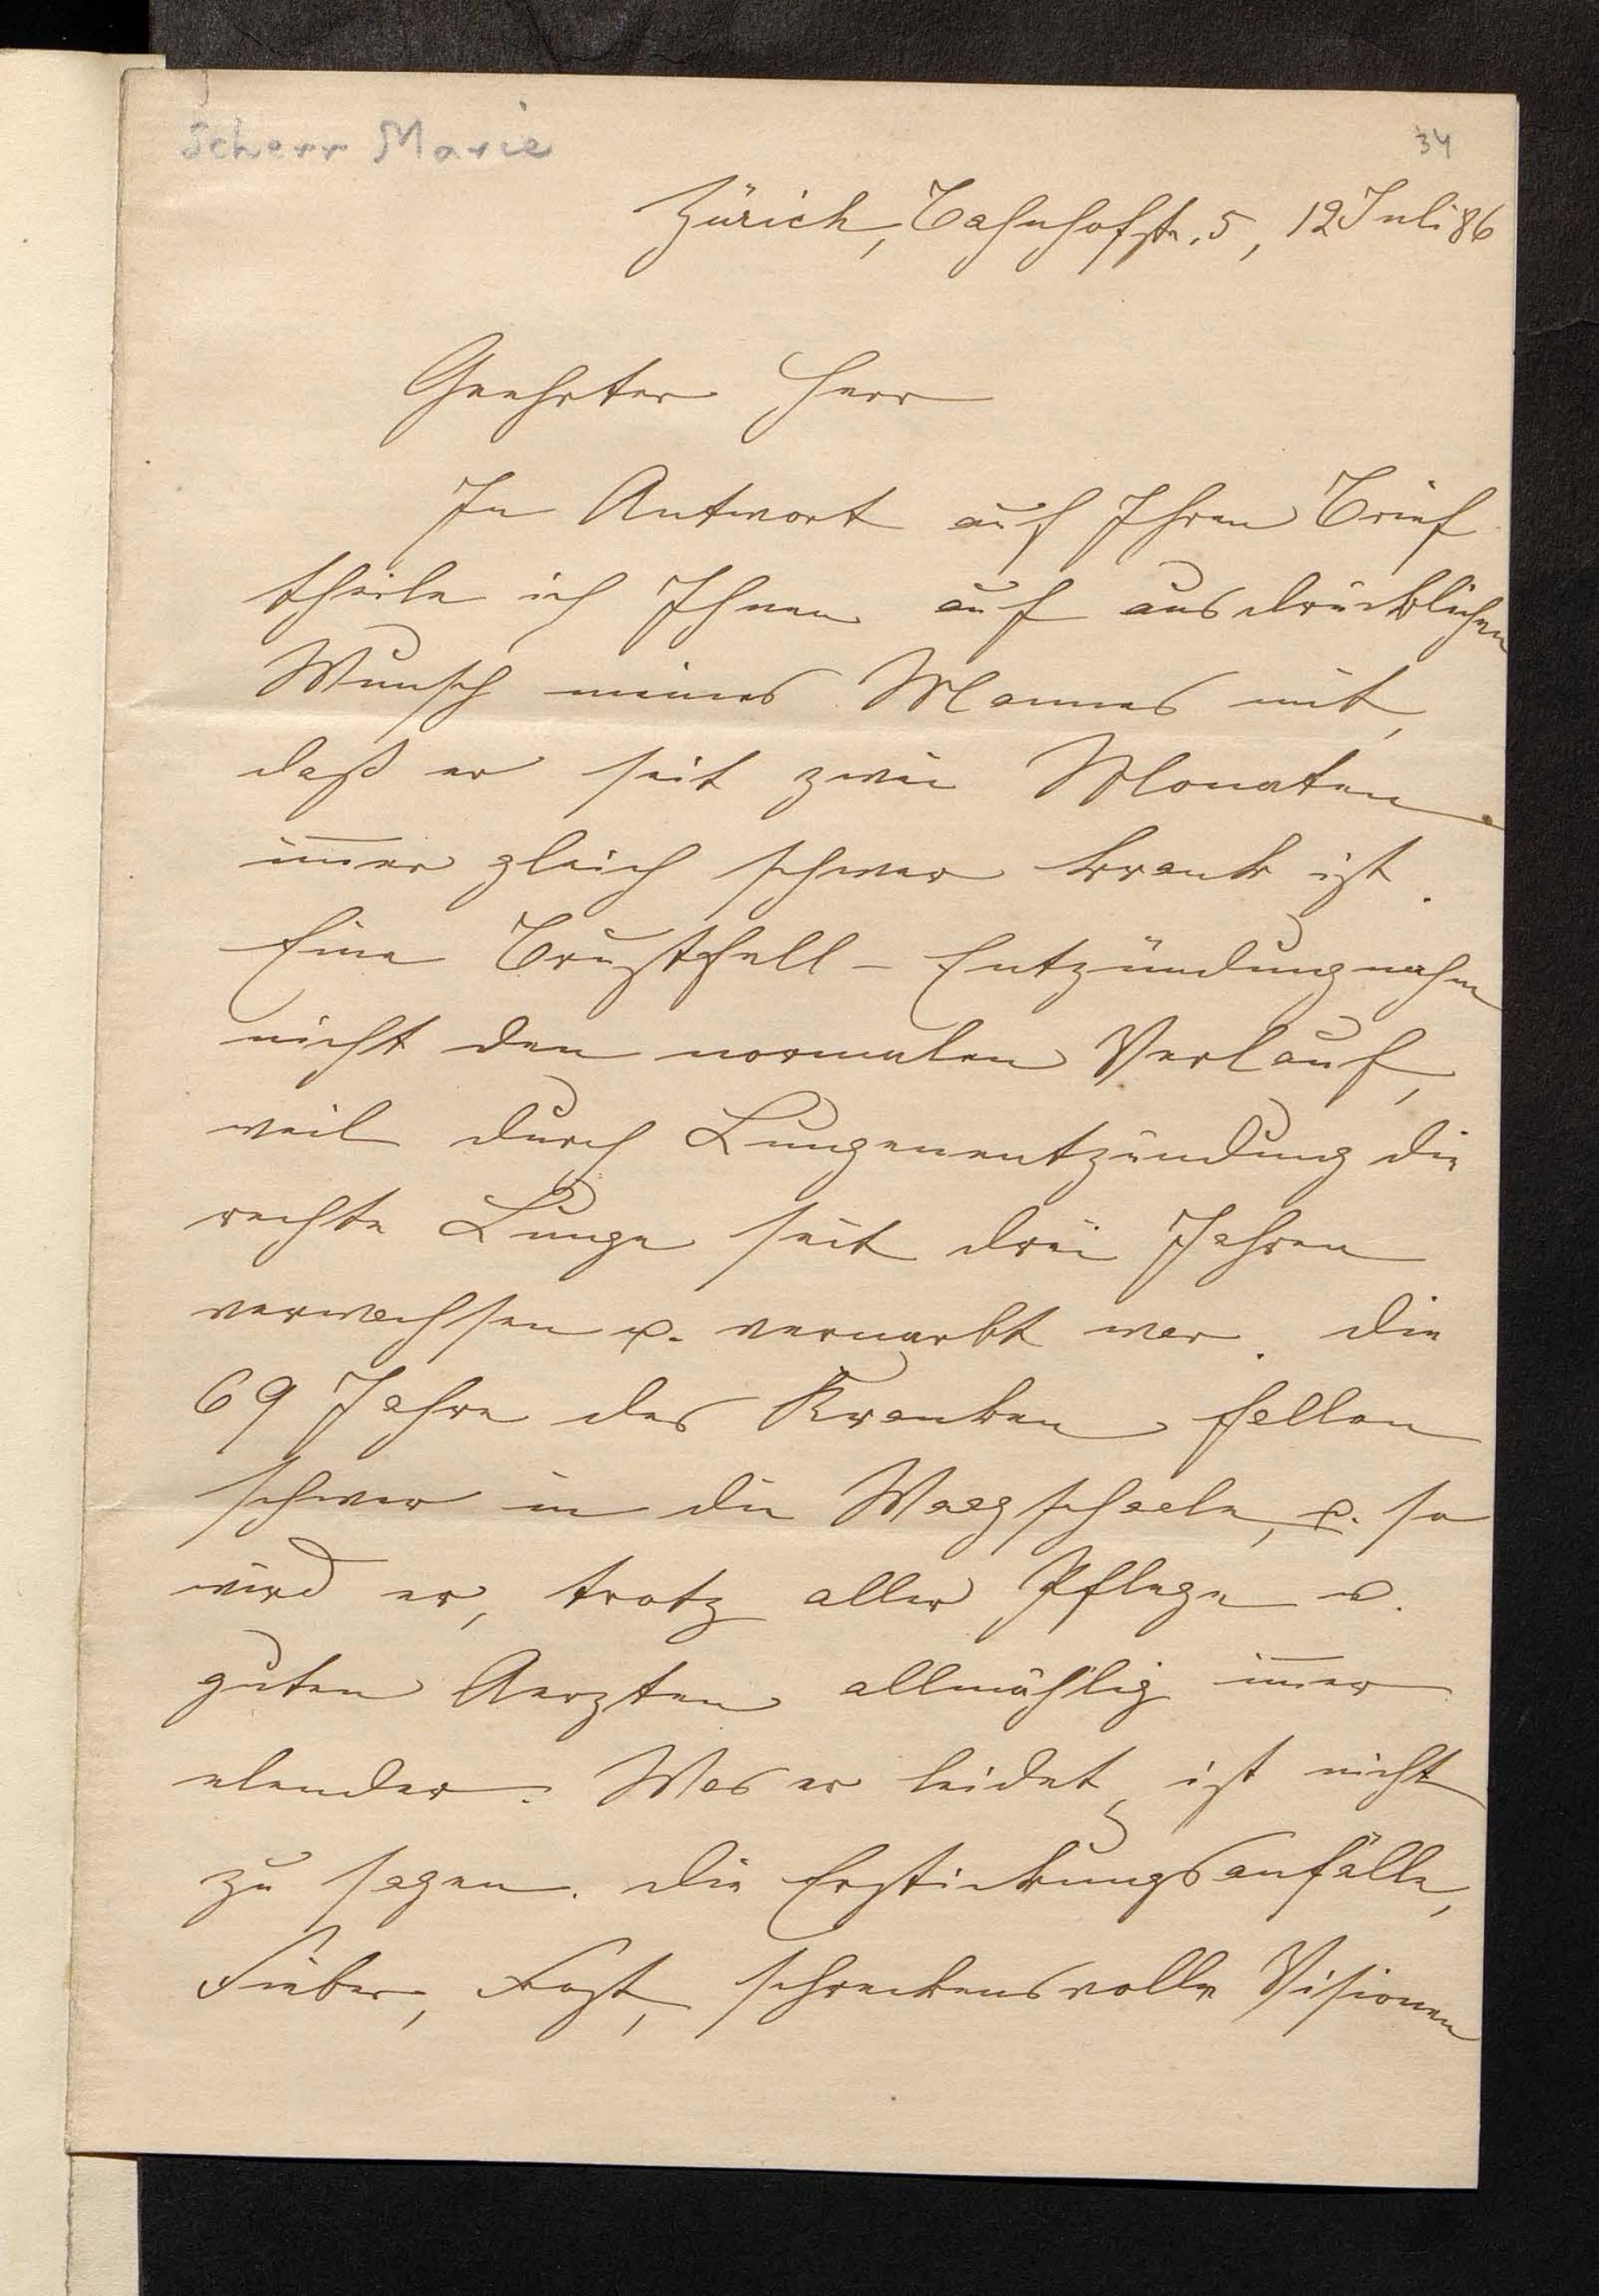 Scherr Marie
34
Zürich, Bahnhofstr. 5, 12 Juli 86
Geehrter Herr
In Antwort auf Ihren Brief
theile ich Ihnen auf ausdrücklichen
Wunsch meines Mannes mit,
daß er seit zwei Monaten
im̅er gleich schwer krank ist.
Eine Brustfell-Entzündung nahm
nicht den normalen Verlauf,
weil durch Lungenentzündung die
rechte Lunge seit drei Jahren
verwachsen u. vernarbt war. Die
69 Jahre des Kranken fallen
schwer in die Waagschaale, u. so
wird er, trotz aller Pflege u.
guten Aerzten allmählig im̅er
elender. Was er leidet, ist nicht
zu sagen. Die Erstickungsanfälle,
Fieber, schreckensvolle Visionen